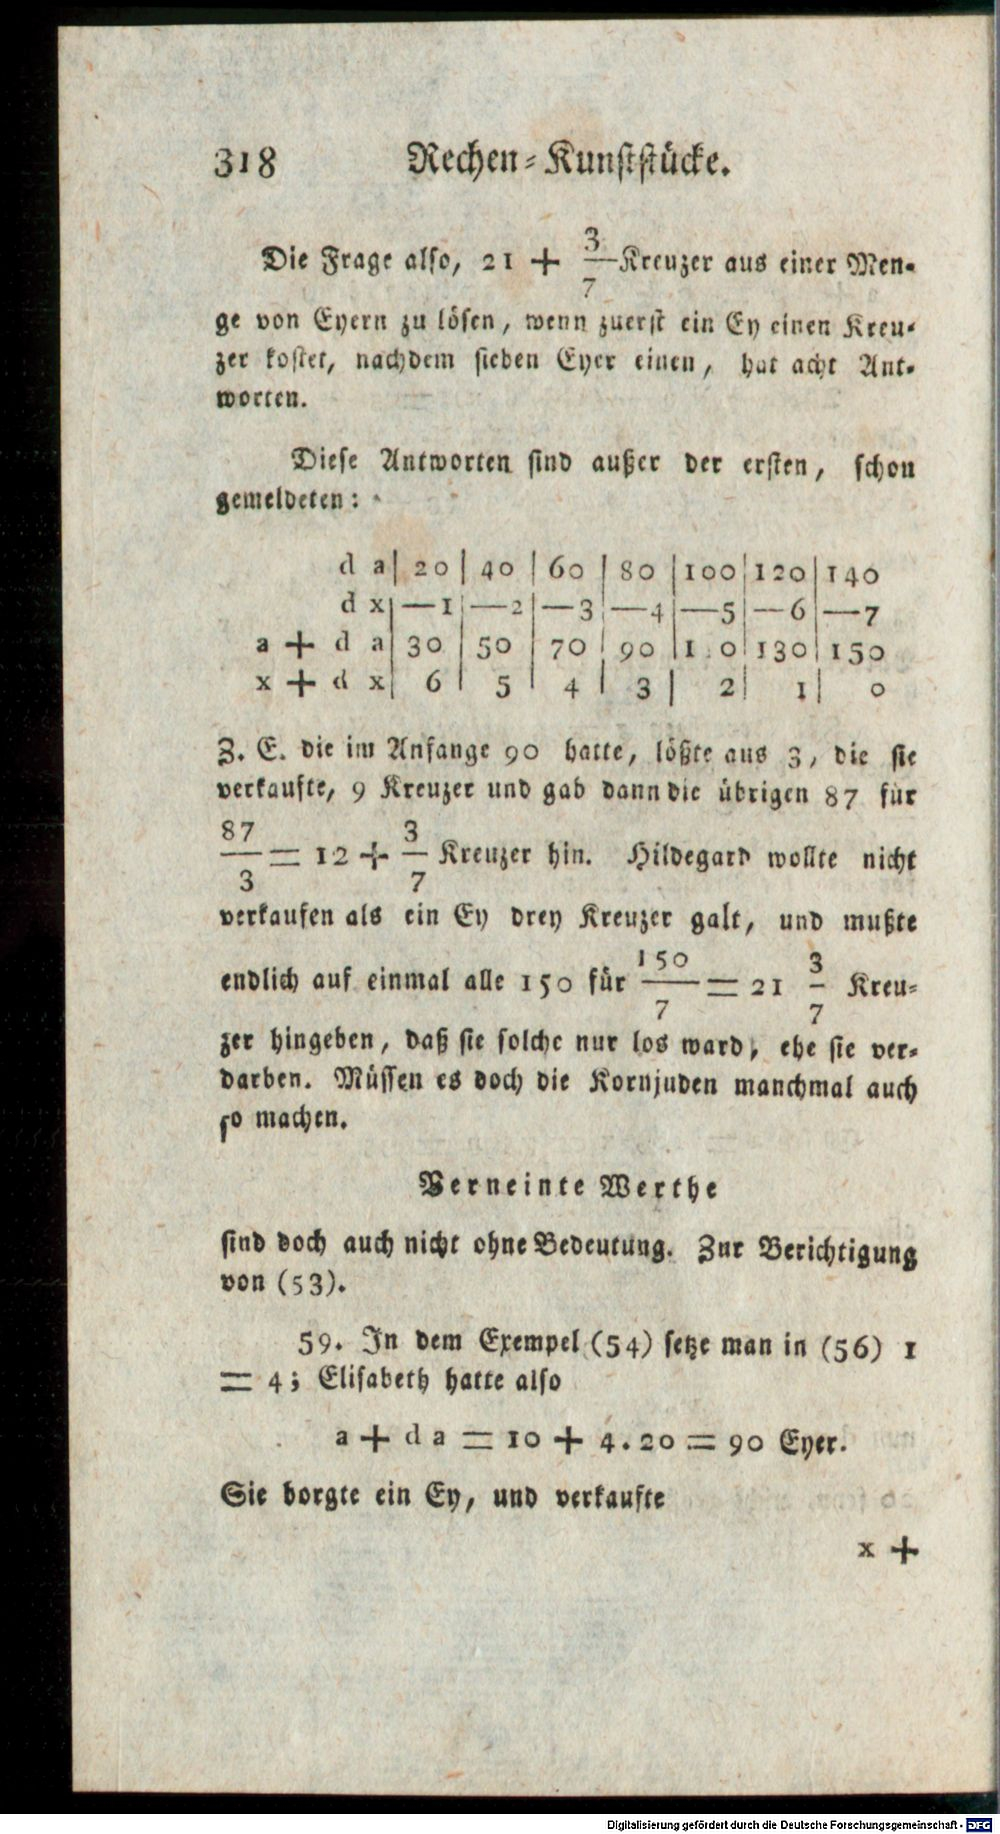 318 Rechen-Kunststücke.
Die Frage also, 21 + 3/7 Kreuzer aus einer Men-
ge von Eyern zu lösen, wenn zuerst ein Ey einen Kreu-
zer kostet, nachdem sieben Eyer einen, hat acht Ant-
worten.
Diese Antworten sind außer der ersten, schon
gemeldeten:
d a| 20 | 40 | 60 | 80 |100|120|140
d x|—1|—2|—3|—4|—5|—6|—7
a + d a|30 | 50 | 70 | 90 |1 0|130|150
x + d x| 6 | 5 | 4 | 3 | 2| 1| 0
Z. E. die im Anfange 90 hatte, lößte aus 3, die sie
verkaufte, 9 Kreuzer und gab dann die übrigen 87 für
87/3 = 12 + 3/7 Kreuzer hin. Hildegard wollte nicht
verkaufen als ein Ey drey Kreuzer galt, und mußte
endlich auf einmal alle 150 für 150/7 = 21 3/7 Kreu-
zer hingeben, daß sie solche nur los ward, ehe sie ver-
darben. Müssen es doch die Kornjuden manchmal auch
so machen.
Verneinte Werthe
sind doch auch nicht ohne Bedeutung. Zur Berichtigung
von (53).
59. In dem Exempel (54) setze man in (56) 1
= 4; Elisabeth hatte also
a + d a = 10 + 4.20 = 90 Eyer.
Sie borgte ein Ey, und verkaufte
x +
Digitalisierung gefördert durch die Deutsche Forschungsgemeinschaft - DFG